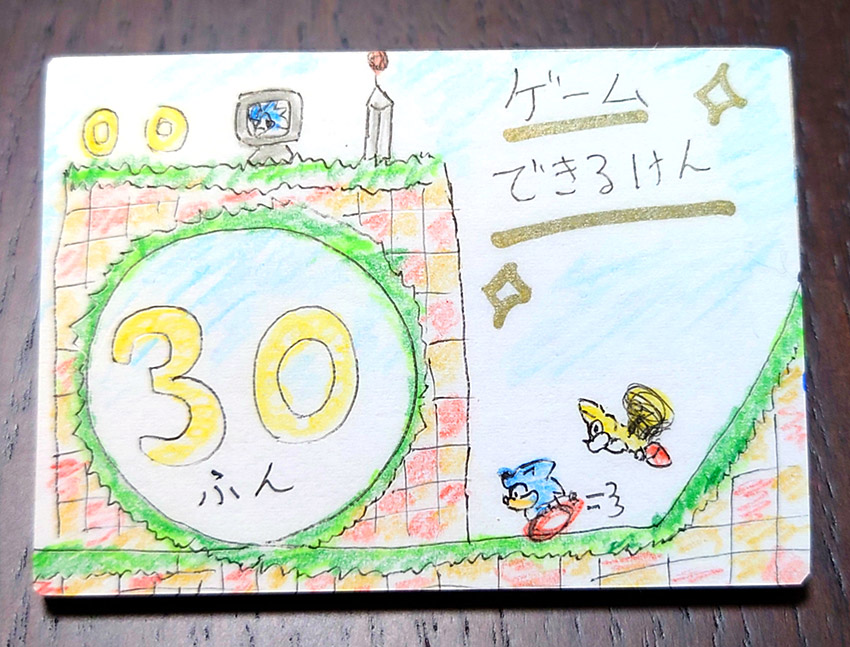 ゲーム
できるけん
30
ふん